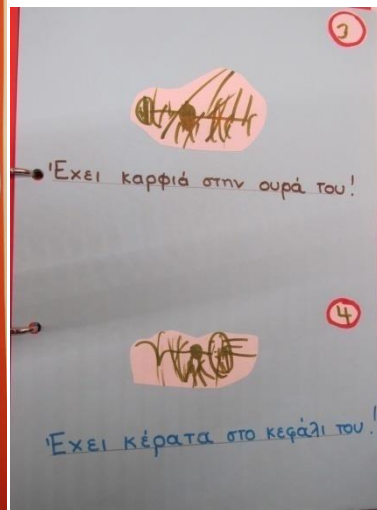 3
Έχει καρφιά στην ουρά του!
4
Έχει κέρατα στο κεφάλι του!